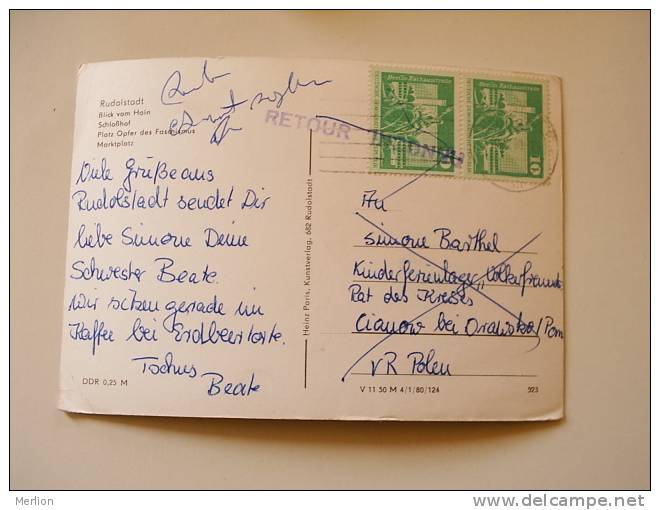 Rudolstadt
Blick vom Hain
Schloßhof
Platz Opfer des Faschismus
Marktplatz
RETOUR
Berlin Rathausstraße
10
Berlin Rathausstraße
10
Viele Grüße aus
Rudolstadt sendet Dir
liebe Simone Deine
Schwester Beate.
Wir sitzen gerade im
Kaffee bei Erdbeertorte.
Tschus
Beate
DDR 0,25 M
Heinz Paris, Kunstverlag, 682 Rudolstadt
An
Simone Barthel
Kinderferienlager „Völkerfreunds
Rat des Kreises
bei
VR Polen
V 11 50 M 4/1/80/124
923
Merlion
http://www.delcampe.net